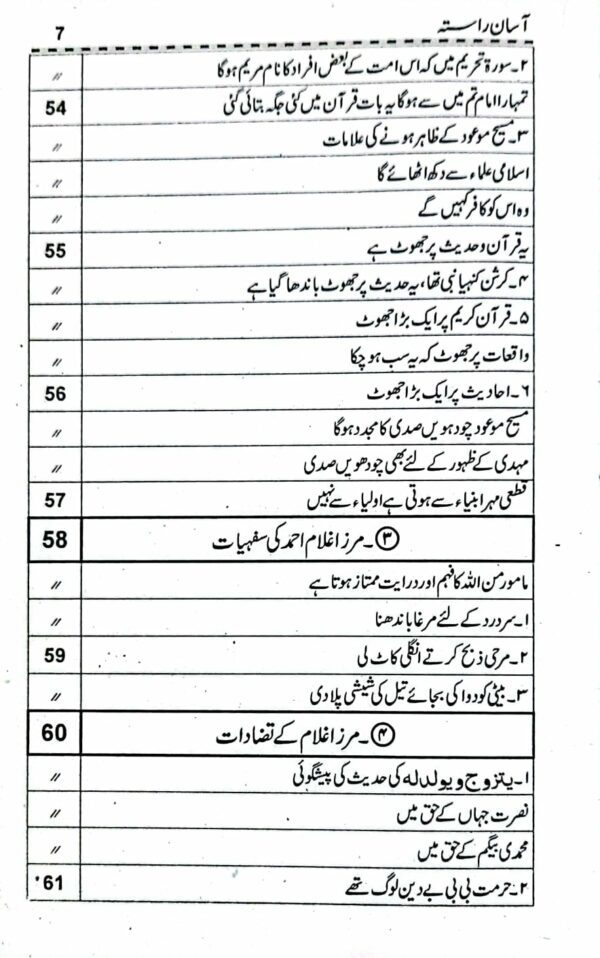 آسان راستہ 7
۲۔سورۃ تحریم میں کہ اس امت کے بعض افراد کا نام مریم ہوگا 〃
تمہارا امام تم میں سے ہوگا یہ بات قرآن میں کئی جگہ بتائی گئی 54
۳۔مسیح موعود کے ظاہر ہونے کی علامات 〃
اسلامی علماء سے دکھ اٹھائے گا 〃
وہ اس کو کافر کہیں گے 〃
یہ قرآن و حدیث پر جھوٹ ہے 55
۴۔کرشن کنہیا نبی تھا، یہ حدیث پر جھوٹ باندھا گیا ہے 〃
۵۔قرآن کریم پر ایک بڑا جھوٹ 〃
واقعات پر جھوٹ کہ یہ سب ہو چکا 〃
۶۔احادیث پر ایک بڑا جھوٹ 56
مسیح موعود چودہویں صدی کا مجدد ہوگا 〃
مہدی کے ظہور کے لئے بھی چودھویں صدی 〃
قطعی مہر ابنیاء سے ہوتی ہے اولیاء سے نہیں 57
③۔مرزا غلام احمد کی سفہیات 58
مامور من اللہ کا فہم اور درایت ممتاز ہوتا ہے 〃
۱۔سردرد کے لئے مرغا باندھنا 〃
۲۔مرغی ذبح کرتے انگلی کاٹ لی 59
۳۔بیٹی کو دوا کی بجائے تیل کی شیشی پلا دی 〃
④۔مرزا غلام کے تضادات 60
۱۔یتزوج ویولدلہ کی حدیث کی پیشگوئی 〃
نصرت جہاں کے حق میں 〃
محمدی بیگم کے حق میں 〃
۲۔حرمت بی بی بے دین لوگ تھے 61